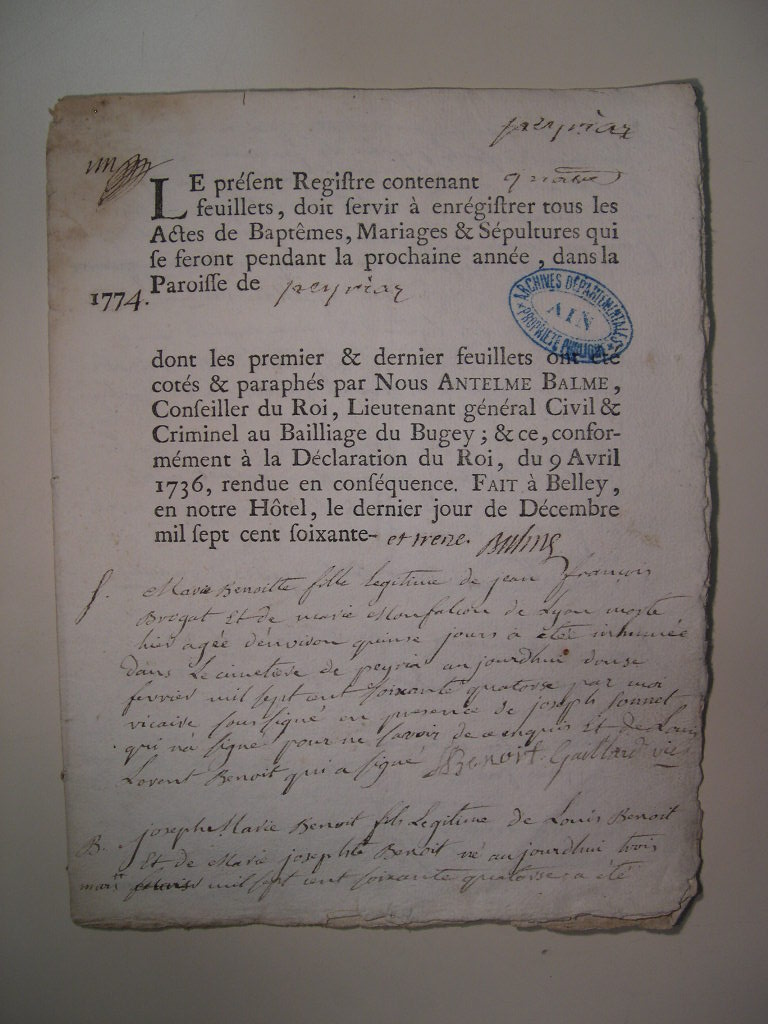 peyriaz
un
LE préſent Regiſtre contenant quatre
feuillets, doit ſervir à enrégiſtrer tous les
Actes de Baptêmes, Mariages & Sépultures qui
ſe feront pendant la prochaine année, dans la
1774. Paroiſſe de peyriaz
ARCHIVES DÉPARTEMENTALES
AIN
* PROPRIÉTÉ PUBLIQUE *
dont les premier & dernier feuillets ont été
cotés & paraphés par Nous ANTELME BALME,
Conſeiller du Roi, Lieutenant général Civil &
Criminel au Bailliage du Bugey; & ce, confor-
mément à la Déclaration du Roi, du 9 Avril
1736, rendue en conſéquence. FAIT à Belley,
en notre Hôtel, le dernier jour de Décembre
mil ſept cent ſoixante- et treze. Balme
S. Marie Benoitte fille legitime de jean françois
Brogat Et de marie Monfalcon de Lyon morte
hier agée d'environ quinse jours a été inhumée
dans Le cimetiere de peyria aujourdhui douse
fevrier mil sept cent soixante quatorse par moi
vicaire sous signé en presence de joseph Sonnet
qui n'a signé pour ne savoir de ce enquis Et de Louis
Lorent Benoit qui a signé LBenoit Gaillard vic
B. joseph Marie Benoit fils Legitime de Louis Benoit
Et de Marie josephte Benoit né aujourdhui trois
mars mil sept cent soixante quatorse a été